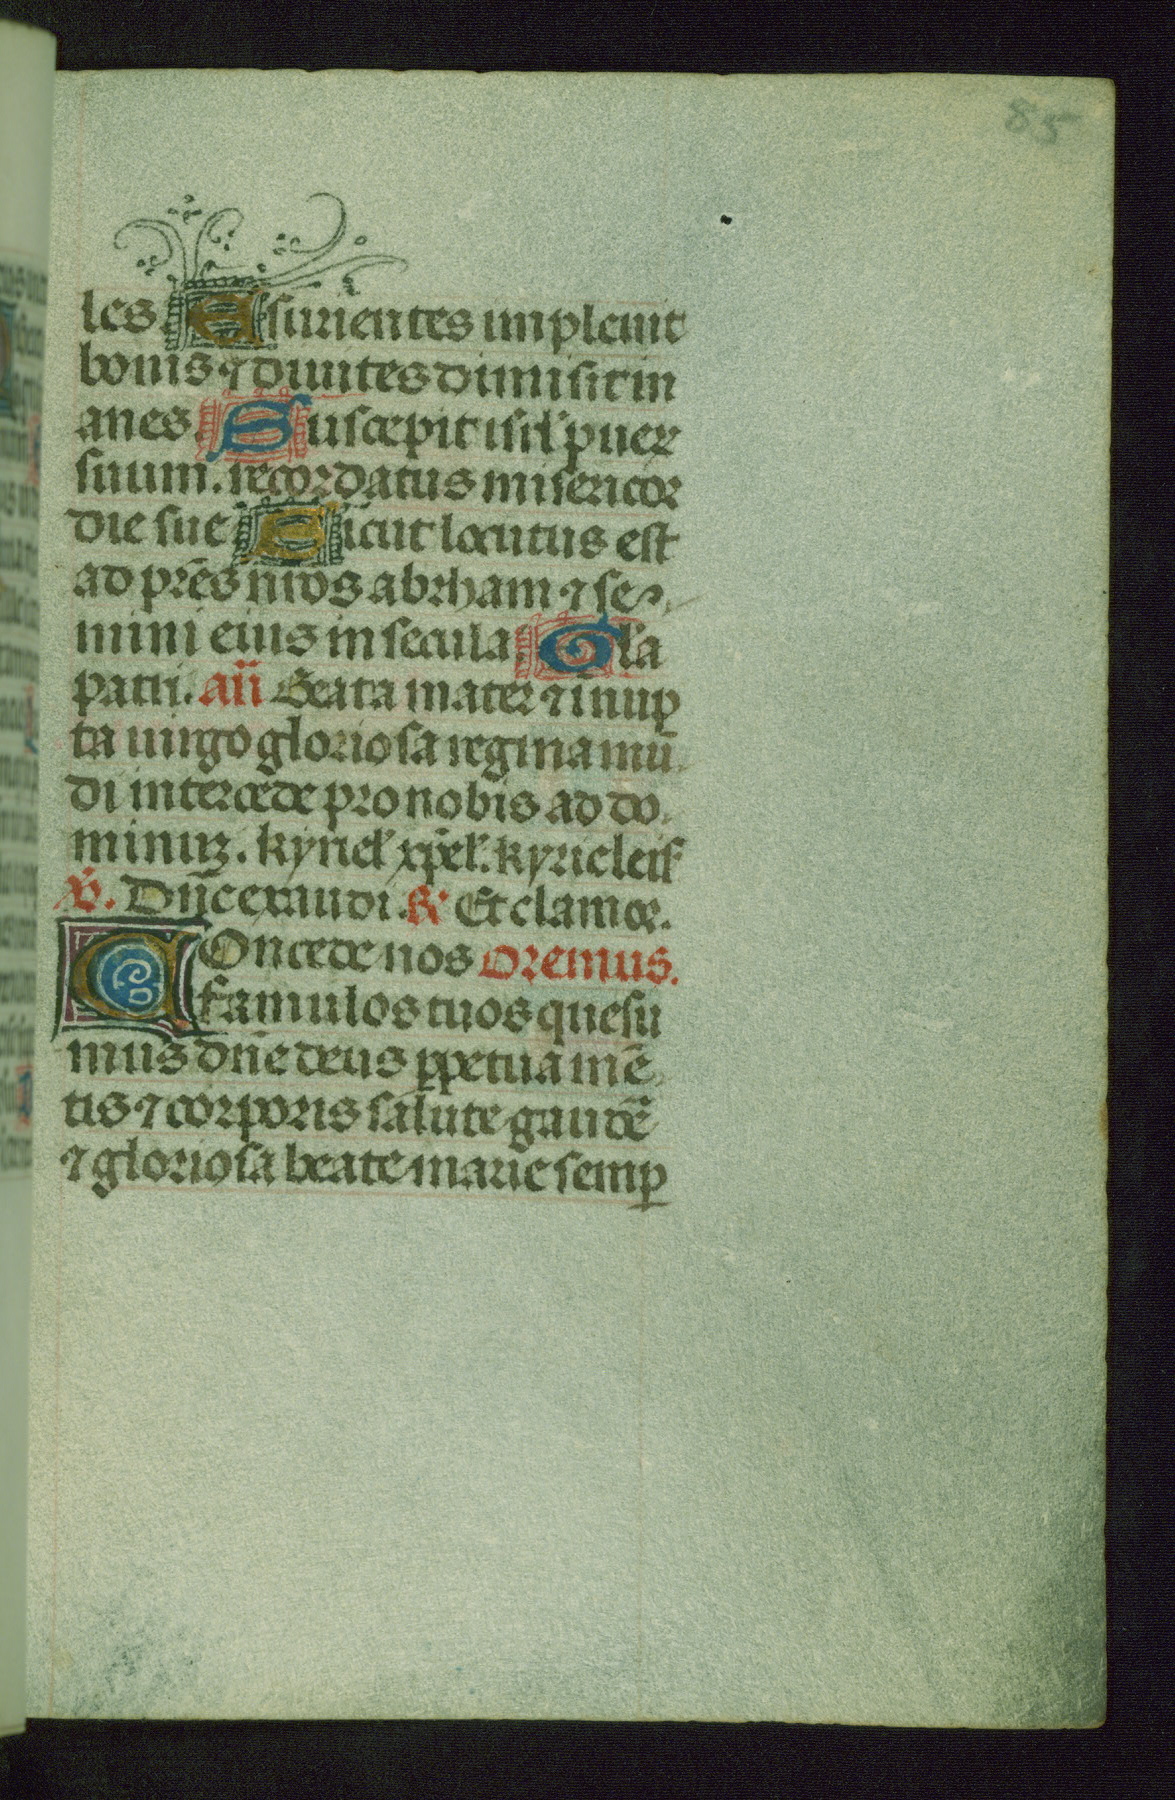 85
les Esurientes impleuit
bonis ⁊ diuites dimisit in
anes. Suscepit isrl' puer
suum. recordatus misericor
die sue Sicut locutus est
ad pr̄es nr̄os abrham ⁊ se
mini eius in secula. Gl'a
patri. an̄ Beata mater ⁊ inup
ta uirgo gloriosa regina mū
di intercede pro nobis ad do
minuꝫ. kyriel' xp̄el'. kyrieleis
℣. Dn̄e exaudi. ℟ Et clamor.
COncede nos Oremus.
famulos tuos quesu
mus dn̄e deus ꝑpetua mē
tis ⁊ corporis salute gaudē
⁊ gloriosa beate marie semꝑ